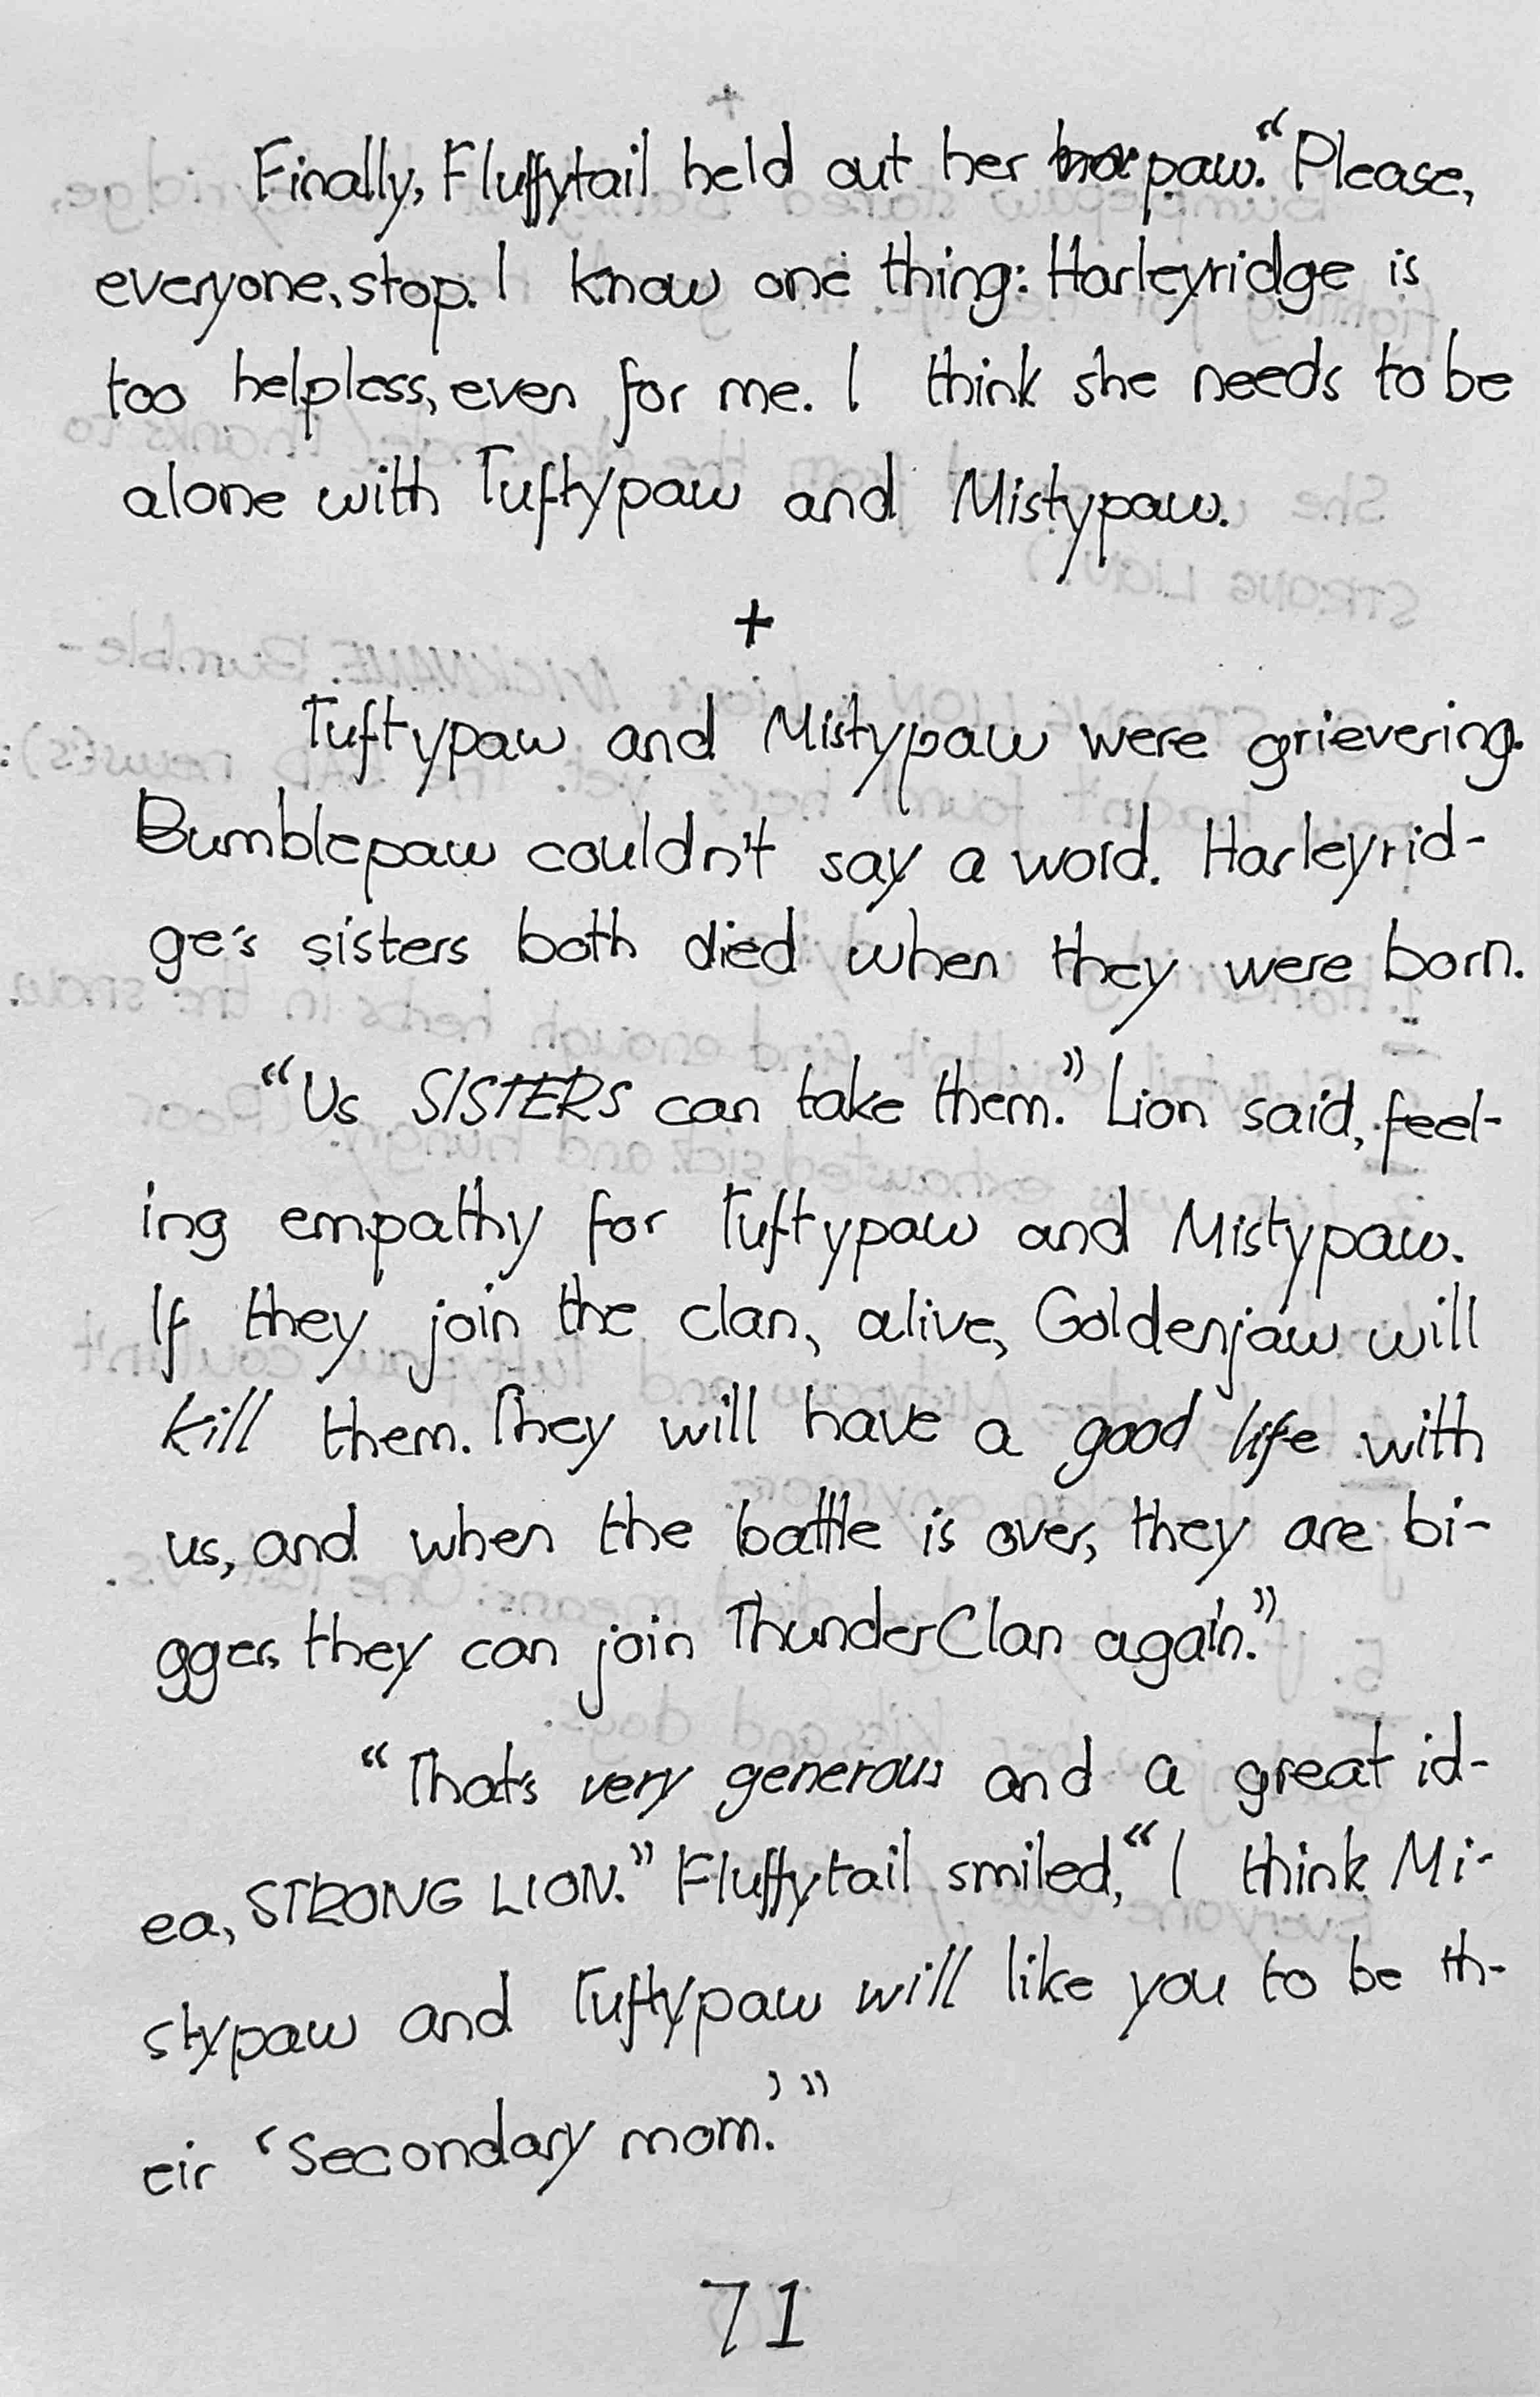 Finally, Fluffytail held out her paw. “Please,
everyone, stop. I know one thing: Harleyridge is
too helpless, even for me. I think she needs to be
alone with Tuftypaw and Mistypaw.
+
Tuftypaw and Mistypaw were grievering.
Bumblepaw couldn't say a word. Harleyrid-
ge's sisters both died when they were born.
“Us SISTERS can take them.” Lion said, feel-
ing empathy for Tuftypaw and Mistypaw.
If they join the clan, alive, Goldenjaw will
kill them. They will have a good life with
us, and when the battle is over, they are bi-
gger, they can join ThunderClan again.”
“That's very generous and a great id-
ea, STRONG LION.” Fluffytail smiled, “I think Mi-
stypaw and Tuftypaw will like you to be th-
eir ‘Secondary mom.’”
71